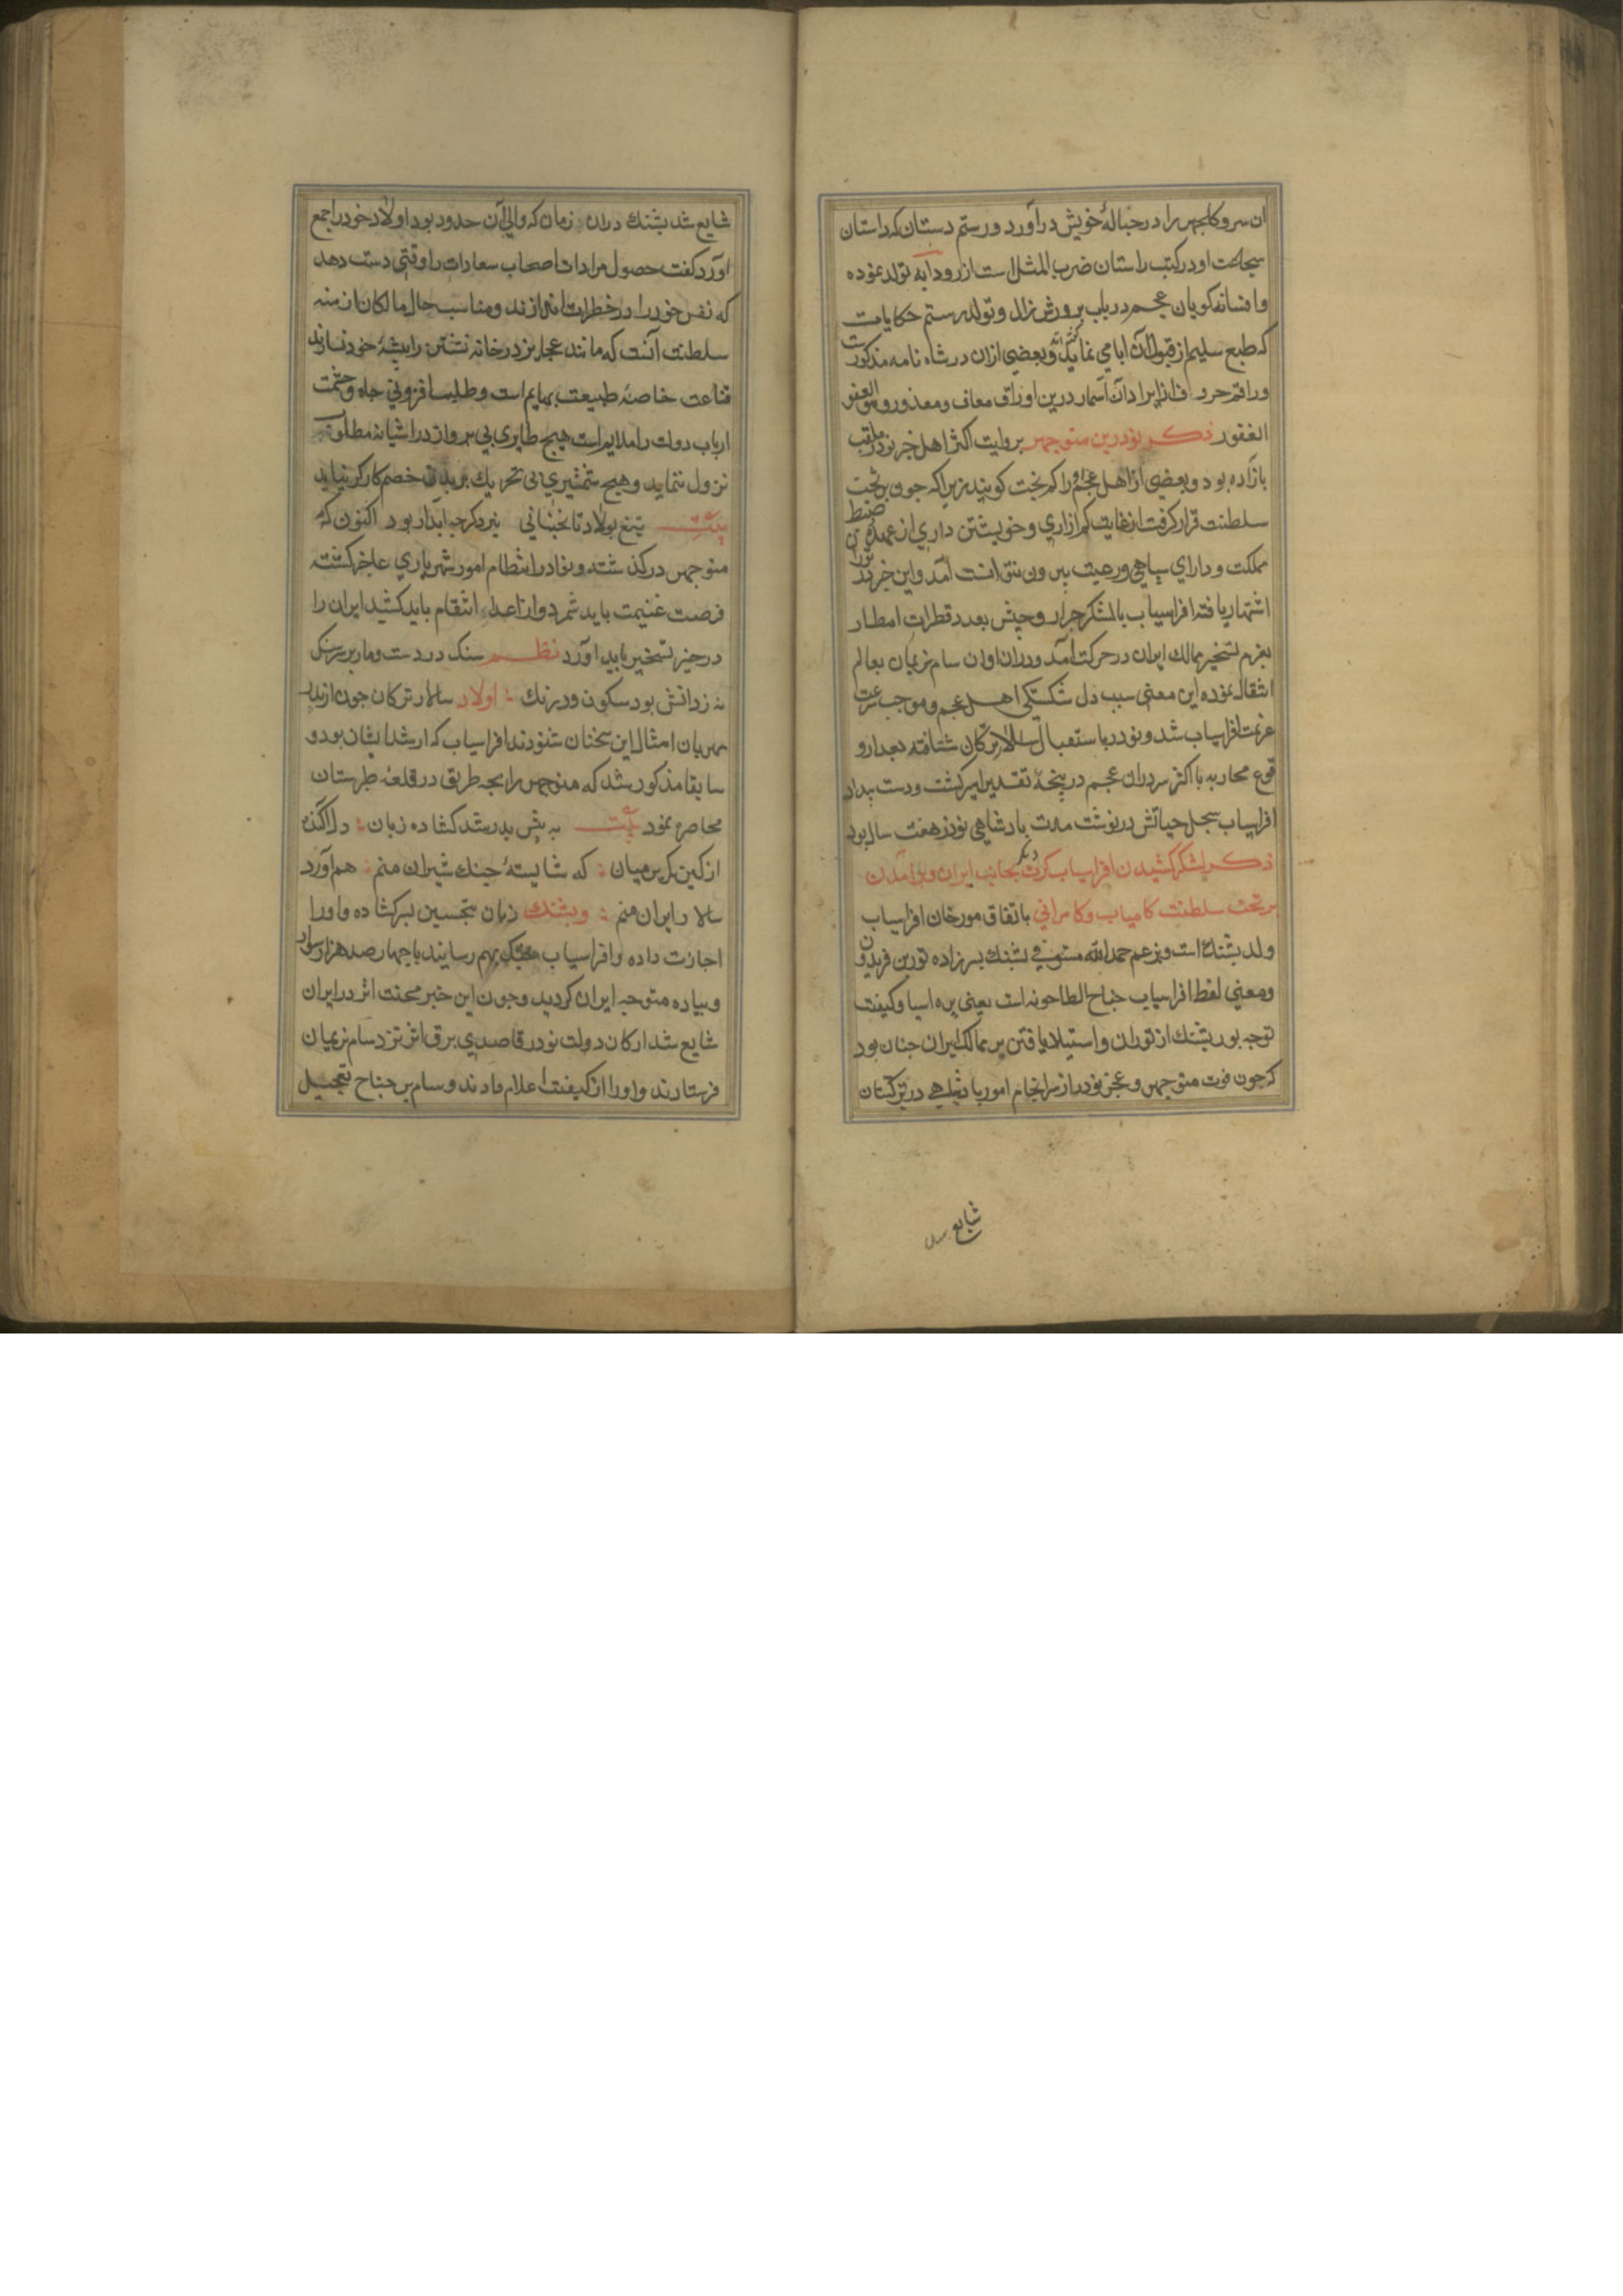 ان سرو کلجهر را در حباله خویش درآورد و رستم دستان که داستان
شجاعت او در کتب راستان ضرب المثل است از رودابه تولد نموده
وافسانه کویان عجم در باب پرورش زال و تولد رستم حکایات
که طبع سلیم از قبول آن ابا می نماید وبعضی ازان در شاه نامه مذکور
وراقم حروف از ایراد آن اسمار درین اوراق معاف ومعذور وهو العفو
الغفور ذکر نوذر بن منوجهر بروایت اکثر اهل خبر نوذر ملقب
بازاده بود وبعضی از اهل عجم او را کم بخت کویند زیرا که جون بر تخت
سلطنت قرار کرفت از غایت کم ازاری وخویشتن داری از عهده ضبط
مملکت ودارای سپاهی ورعیت بیرون نتوانست آمد واین خبر در توران
اشتهار یافته افراسیاب بالشکر جرار وجیش بعدد قطرات امطار
بعزم تسخیر ممالک ایران در حرکت آمد ودران اوان سام نریمان بعالم
انتقال نموده این معنی سبب دل شکستکی اهل عجم وموجب سرعت
عزیمت افراسیاب شد ونوذر باستقبال سالار ترکان شتافته بعد از و
قوع محاربه با اکثر سرداران عجم در پنجه تقدیر اسیر کشت ودست بیداد
افراسیاب سجل حیاتش درنوشت مدت بادشاهی نوذر هفت سال بود
ذکر لشکر کشیدن افراسیاب کرت دیکر بجانب ایران وبرآمدن
بر تخت سلطنت کامیاب وکامرانی باتفاق مورخان افراسیاب
ولد پشنک است وبزعم حمدالله مستوفی پشنک پسرزاده تور بن فریدون
ومعنی لفظ افراسیاب جناح الطاحونه است یعنی پره اسیا وکیفیت
توجه پور پشنک از توران واستیلا یافتن بر ممالک ایران جنان بود
که جون فوت منوجهر وعجز نوذر از سرانجام امور بادشاهی در ترکستان
شایع
شایع شد پشنک دران زمان که والی آن حدود بود اولاد خود را جمع
آورد کفت حصول مرادات اصحاب سعادات را وقتی دست دهد
که نفس خود را در خطرات اندازند ومناسب حال مالکان ازمنه
سلطنت آنست که مانند عجایز در خانه نشستن را پیشه خود نسازند
قناعت خاصه طبیعت بهایم است وطلب افزونی جاه وحشمت
ارباب دولت را ملایم است هیچ طایری بی پرواز در اشیانه مطلوب
نزول ننماید وهیچ شمشیری بی تحریک بریدن خصم کارکر نیاید
بیت تیغ بولاد تا نجنبانی نبرد کرجه ابدار بود اکنون که
منوجهر درکذشته ونوذر از انتظام امور شهریاری عاجز کشته
فرصت غنیمت باید شمرد واز اعدا انتقام باید کشید ایران را
در حیز تسخیر باید آورد نظم سنک در دست ومار بر سر سنک
نه ز دانش بود سکون ودرنک اولاد سالار ترکان جون از پدر
مهربان امثال این سخنان شنودند افراسیاب که ارشد ایشان بود و
سابقا مذکور شد که منوجهر را بجه طریق در قلعه طبرستان
محاصره نمود بیت به پیش پدر شد کشاده زبان دل اکنده
از کین کمر بر میان که شایسته جنک شیران منم هم آورد
سالار ایران منم وپشنک زبان بتحسین پسر کشاده واورا
اجازت داده وافراسیاب بهم رسانید باجهار صد هزار سوار
وپیاده متوجه ایران کردید وجون این خبر محنت اثر در ایران
شایع شد ارکان دولت نوذر قاصدی برق اثر نزد سام نریمان
فرستادند واورا از کیفیت اعلام دادند وسام بر جناح تعجیل